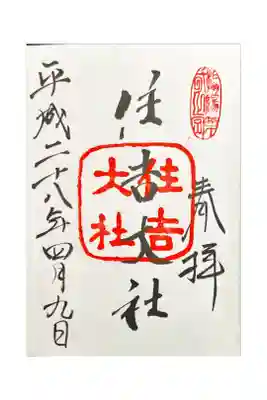 奉拝
住吉大社
住吉大社
平成二十八年四月九日